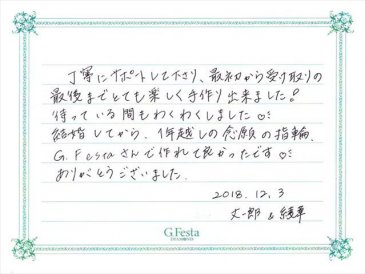 丁寧にサポートして下さり、最初から受け取りの
最後までとても楽しく手作り出来ました！
待っている間もわくわくしました♡
結婚してから、1年越しの念願の指輪、
G.Festaさんで作れて良かったです♡
ありがとうございました。
2018.12.3
丈一郎 & 綾華
G.Festa
DIAMONDS